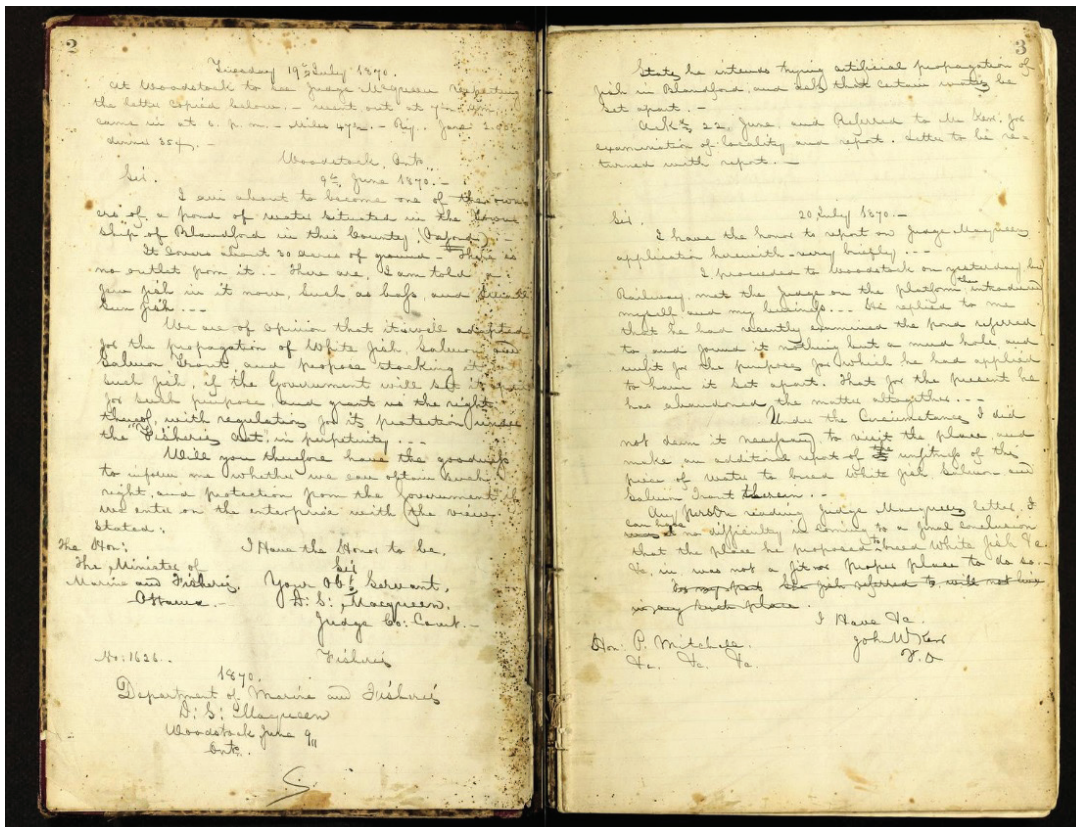 2
Tuesday 19th July 1870.
At Woodstock to see Judge Macqueen respecting
the letter copied below. - went out at 7
came in at 6. p.m. - Miles 47½. - Ry. Fare 2.85
dinner 35¢. -
Woodstock, Ont.
9th June 1870. -
Sir.
I am about to become one of the own
ers of a pond of water situated in the Town
ship of Blandford in this County (Oxford) -
It covers about 30 acres of ground - There is
no outlet from it. - There are, I am told a
few fish in it now, such as bass, and
Sun fish. - - -
We are of opinion that it is well adapted
for the propagation of White fish, Salmon and
Salmon Trout and propose stocking it
such fish, if the Government will set it apart
for such purpose and grant us the right
thereof, with regulation for its protection under
the "Fisheries Act" in perpetuity. - - -
Will you therefore have the goodness
to inform me whether we can obtain such
right, and protection from the Government if
we enter on the enterprise with the views
stated:
I Have the Honor to be,
The Hon:
Sir
The Minister of
Your Obt Servant,
Marine and Fisheries
D: S: Macqueen.
Ottawa. -
Judge Co: Court. -
No: 1626. -
Fisheries
1870.
Department of Marine and Fisheries
D: S: Macqueen
Woodstock June 9
Ont.
3
States he intends trying artificial propagation of
fish in Blandford, and asks that certain waters be
set apart. -
Ackd 22 June and Referred to Mr Kerr, for
examination of locality and report. Letter to be re-
turned with report. -
20 July 1870. -
Sir
I have the honor to report on Judge Macqueen's
application herewith - very briefly. - - -
I proceeded to Woodstock on yesterday, by
Railway, met the Judge on the platform, introduced
myself and my business. - - He replied to me
that he had recently examined the pond referred
to, and found it nothing but a mud hole and
unfit for the purposes for which he had applied
to have it set apart. That for the present he
has abandoned the matter altogether. - - -
Under the Circumstances I did
not deem it necessary to visit the place, and
make an additional report of the unfitness of this
piece of water to breed White fish Salmon and
Salmon Trout therein. - -
Any person reading Judge Macqueen's letter,
can have no difficulty in coming to a final conclusion
that the place he proposed to breed White fish &c.
&c, in, was not a fit or proper place to do so. -
the fish referred to will not live
in any such place.
I Have &c.
Hon: P. Mitchell.
John W Kerr
&c. &c. &c.
F. O